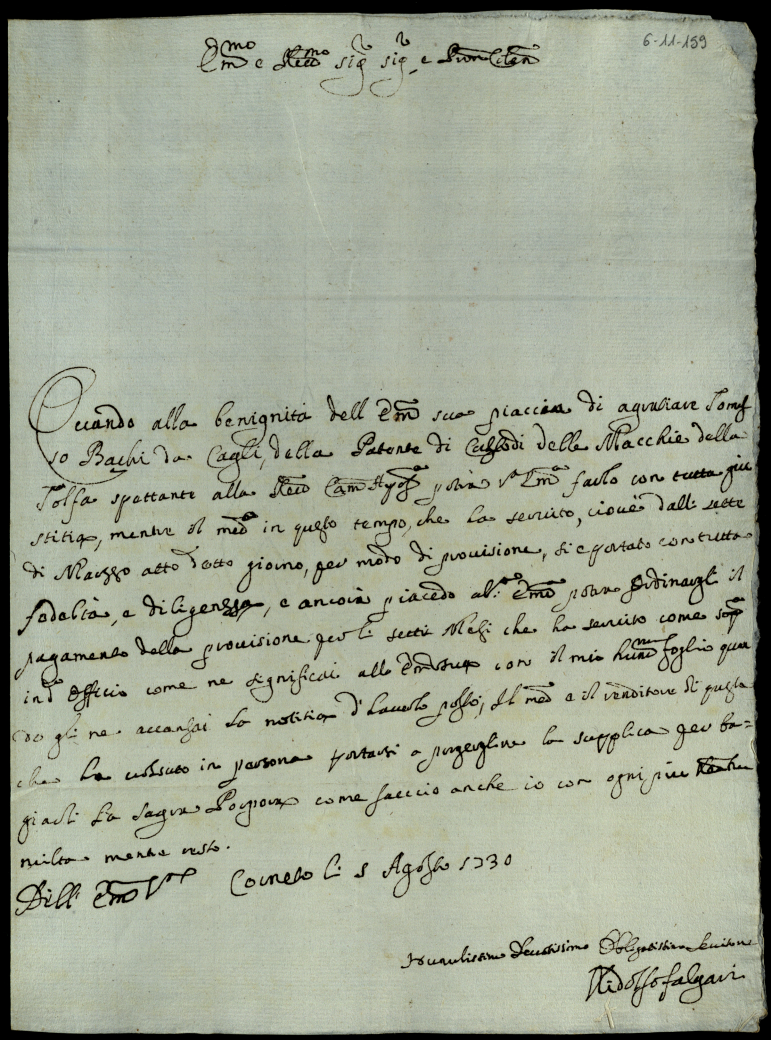 6-11-159
Em̃mo e Reũmo sig.r sig.r e Pñron Colñ
Quando alla benignità dell Em̃ sua piaccia di agratiare Tomas
so Bachi da Cagli, della Patente di Custodi delle Macchie della
Tolfa spettante alla Reũ Cam̃ Apos.a potrà V.a Em̃a farlo con tutta giu
stitia, mentre il med.o in questo tempo, che ha servito, ciouè dalli sette
di Marzo atto detto giorno, per modo di provisione, si è portato con tutta
fedeltà, e diligenzza, e ancora piacedo al V.a Em̃a potrà ordinargli il
pagamento della provisione per li setti Mesi che ha servito come sop.a
in d.o Officio come ne significai allo Em̃ sua con il mio hum̃mo foglio quan
do gli ne accusai la notitia d'haverlo posto, Il med.o e il renditore di questa
che ha volsuto in persona portarsi a porgergline la supplica per ba=
giarli la Sagra Porpora come faccio anche io con ogni più
miltà mentre resto.
Dell' Em̃ V.ra Corneto li 5 Agosto 1730
Humilissimo Devotissimo Obligatissimo Servitore
Ridolfo falgari